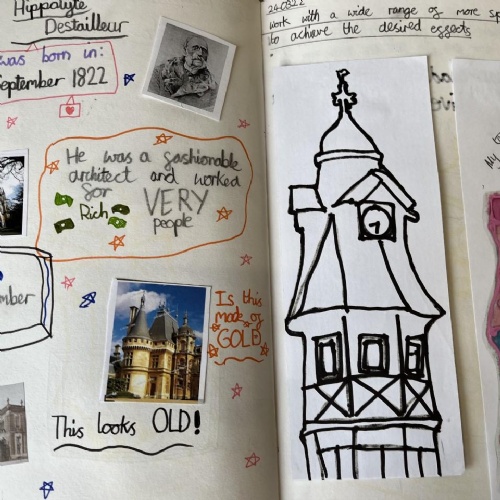 Hippolyte
Destailleur
was born in:
September 1822
He was a fashionable
architect and worked
for
Rich VERY
people
Is this
made of
GOLD
This looks OLD!
240822
work with a wide range of more
to achieve the desired effects